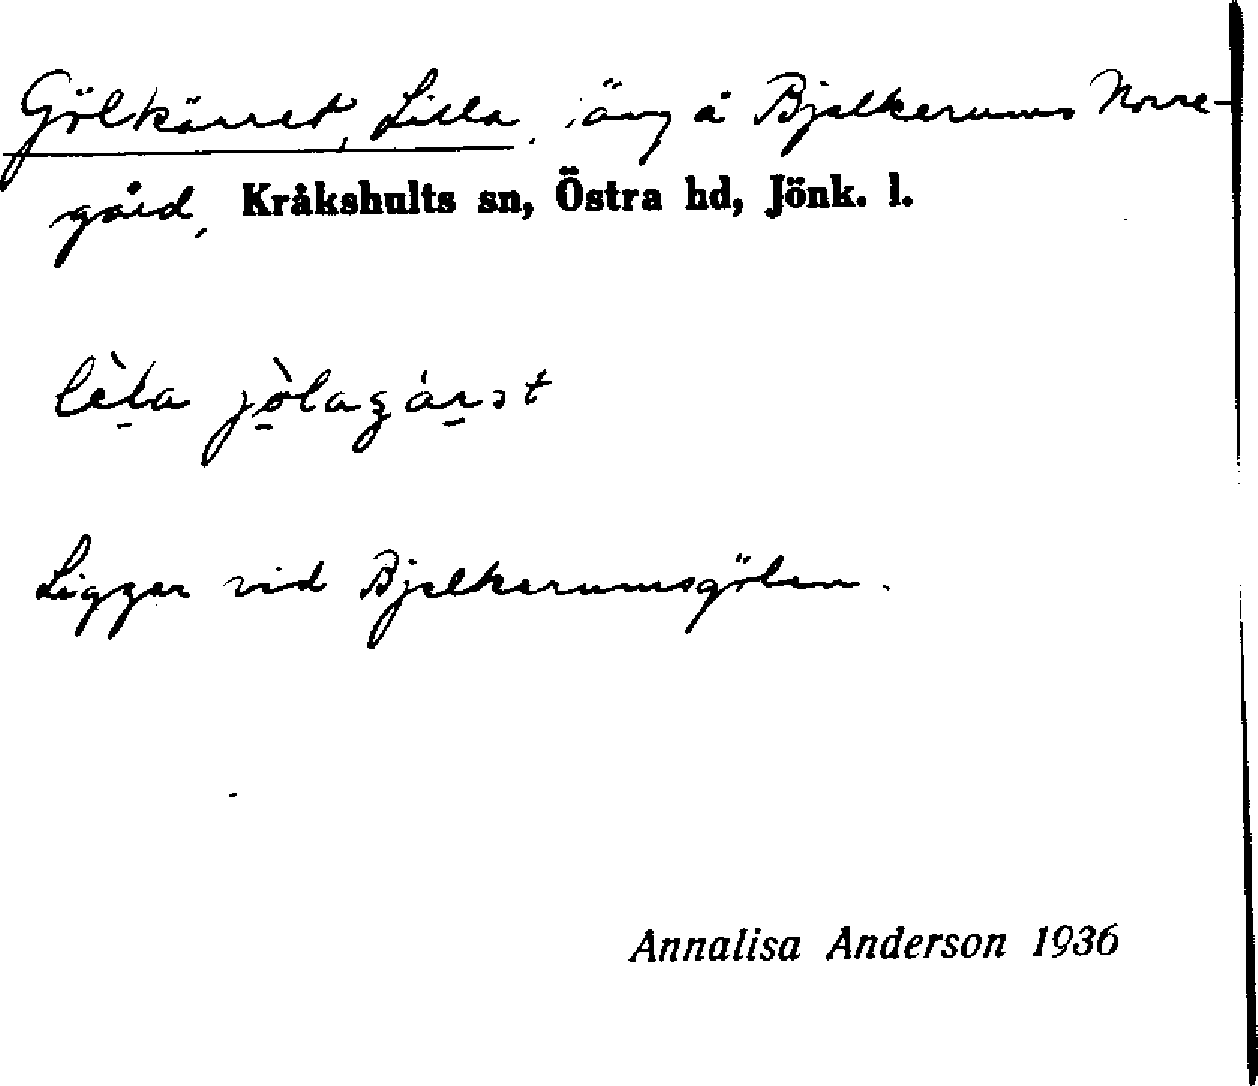 Gölkärret, Lilla, äng å Bjelkerums Norre-
gård, Kråkshults sn, Östra hd, Jönk. l.
Ligger vid Bjelkerumsgölen.
Annalisa Anderson 1936